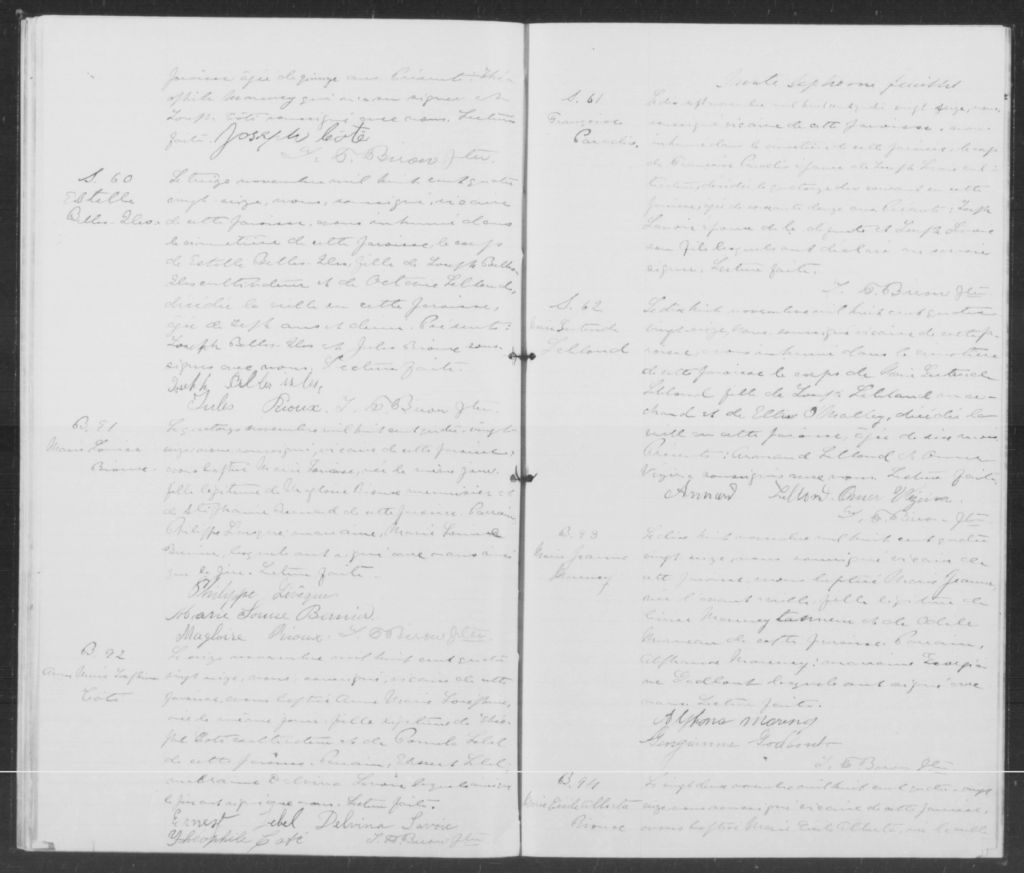 paroisse âgée de quinze ans. Présents: Théo
phile Morency qui n'a su signer et
Joseph Côté soussigné avec nous. Lecture
faite. Joseph Cote
J. E. Buron Ptre
S. 60
Estelle
Belles-Iles
Le treize novembre mil huit cent quatre
vingt seize, nous, soussigné, vicaire
de cette paroisse, avons inhumé dans
le cimetière de cette paroisse le corps
de Estelle Belles-Iles, fille de Joseph Belles-
Iles cultivateur et de Octavie Leblond,
décédée la veille en cette paroisse,
âgée de sept ans et demi. Présents:
Joseph Belles-Iles et Jules Rioux sous-
signés avec nous. Lecture faite.
Joseph Belles Isles
Jules Rioux. J. E. Buron Ptre
B. 91
Marie Louise
Rioux
Le quatorze novembre mil huit cent quatre vingt
seize, nous, soussigné, vicaire de cette paroisse,
avons baptisé Marie Louise, née le même jour,
fille légitime de Magloire Rioux menuisier et
de de cette paroisse. Parrain
Philippe Levesque, marraine, Marie Louise
Bernier, lesquels ont signé avec nous ainsi
que le père. Lecture faite.
Philippe Lévêque
Marie Louise Bernier
Magloire Rioux. J. E. Buron Ptre
B 92
Anna Marie Josephine
Côté
Le seize novembre mil huit cent quatre
vingt seize, nous, soussigné, vicaire de cette
paroisse, avons baptisé Anna Marie Josephine,
née le même jour, fille légitime de Théo-
phile Côté cultivateur et de Pamela Lebel
de cette paroisse. Parrain, Ernest Lebel,
marraine Delvina Lavoie lesquels ainsi que
le père ont signé avec nous. Lecture faite.
Ernest Lebel Delvina Lavoie
Théophile Coté J. E. Buron Ptre
Trente septième feuillet
S. 61
Françoise
Paradis
Le novembre mil huit cent quatre vingt seize, nous,
soussigné vicaire de cette paroisse, avons
inhumé dans le cimetière de cette paroisse le corps
de Françoise Paradis épouse de Joseph Lavoie cul-
tivateur, décédée le quatorze du courant en cette
paroisse, âgée de soixante douze ans. Présents: Joseph
Lavoie époux de la défunte et Joseph Lavoie
son fils lesquels ont déclaré ne savoir
signer. Lecture faite.
J. E. Buron Ptre
S. 62
Marie Gertrude
Leblond
Le dix huit novembre mil huit cent quatre
vingt seize, nous, soussigné vicaire de cette pa-
roisse, avons inhumé dans le cimetière
de cette paroisse le corps de Marie Gertrude
Leblond fille de Joseph Leblond mar-
chand et de Ellen O'Malley, décédée la
veille en cette paroisse, âgée de dix mois.
Présents: Armand Leblond et Omer
Vézina soussignés avec nous. Lecture faite.
Armand Leblond Omer Vézina
J. E. Buron Ptre
B. 93
Marie Jeanne
Morency
Le dix huit novembre mil huit cent quatre
vingt seize, nous soussigné vicaire de
cette paroisse, avons baptisé Marie Jeanne,
née l'avant veille, fille légitime de
Morency tanneur et de Odile
Moreau de cette paroisse. Parrain,
Alphonse Morency; marraine Georgian-
ne Godbout lesquels ont signé avec
nous. Lecture faite.
Alphons Morency
Georgianne Godbout
J. E. Buron Ptre
B. 94
Marie Emile Alberta
Rioux
Le vingt deux novembre mil huit cent quatre vingt
seize, nous soussigné vicaire de cette paroisse,
avons baptisé Marie Emile Alberta, née la veille